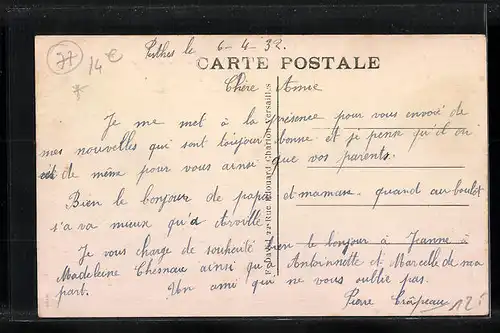 77
14€
Perthes le 6-4-32.
CARTE POSTALE
Chère Amie
Je me met à la présence pour vous envoié de
mes nouvelles qui sont toujour bonne et je pense qu'il en
est de même pour vous ainsi que vos parents.
Bien le bonjour de papa et maman. quand au boulot
s'a va mieux qu'à
Je vous charge de souhaité bien le bonjour à Jeanne à
Madeleine Chesnau ainsi qu'à Antoinnette et Marcelle de ma
part. Un ami qui ne vous oublre pas.
Pierre Crâpeau
Rue Edouard Charton Versailles